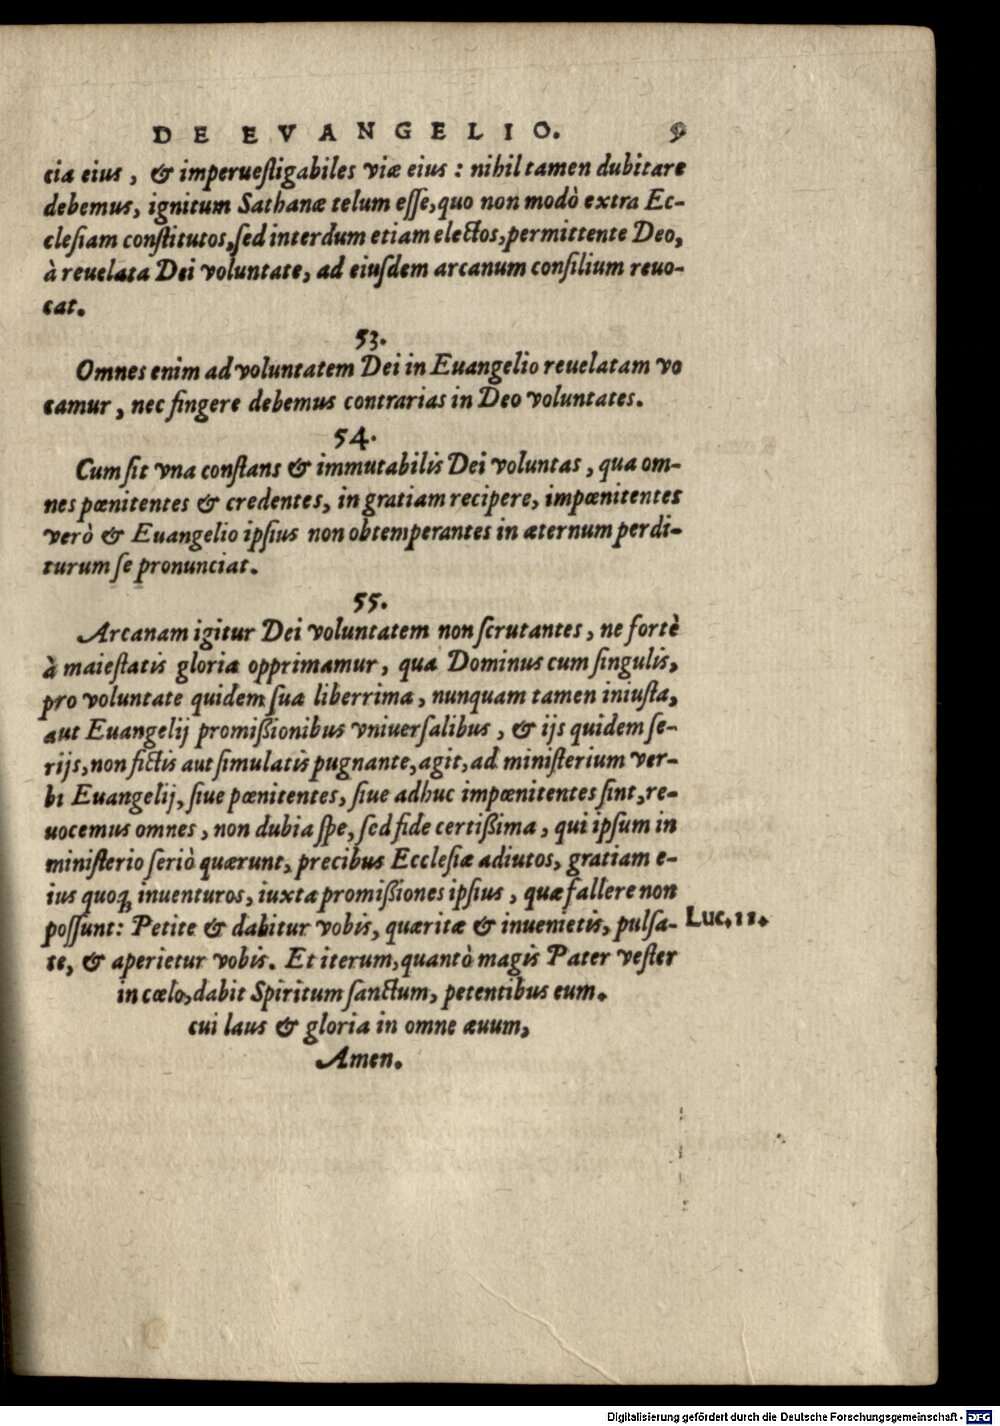 DE EVANGELIO. 9
cia eius, & imperuestigabiles viæ eius: nihil tamen dubitare
debemus, ignitum Sathanæ telum esse, quo non modò extra Ec-
clesiam constitutos, sed interdum etiam electos, permittente Deo,
à reuelata Dei voluntate, ad eiusdem arcanum consilium reuo-
cat.
53.
Omnes enim ad voluntatem Dei in Euangelio reuelatam vo
camur, nec fingere debemus contrarias in Deo voluntates.
54.
Cum sit vna constans & immutabilis Dei voluntas, qua om-
nes pœnitentes & credentes, in gratiam recipere, impœnitentes
verò & Euangelio ipsius non obtemperantes in æternum perdi-
turum se pronunciat.
55.
Arcanam igitur Dei voluntatem non scrutantes, ne fortè
à maiestatis gloria opprimamur, qua Dominus cum singulis,
pro voluntate quidem sua liberrima, nunquam tamen iniusta,
aut Euangelij promißionibus vniuersalibus, & ijs quidem se-
rijs, non fictis aut simulatis pugnante, agit, ad ministerium ver-
bi Euangelij, siue pœnitentes, siue adhuc impœnitentes sint, re-
uocemus omnes, non dubia spe, sed fide certißima, qui ipsum in
ministerio seriò quærunt, precibus Ecclesiæ adiutos, gratiam e-
ius quoq; inuenturos, iuxta promißiones ipsius, quæ fallere non
possunt: Petite & dabitur vobis, quæritæ & inuenietis, pulsa- Luc. 11.
te, & aperietur vobis. Et iterum, quantò magis Pater vester
in cœlo, dabit Spiritum sanctum, petentibus eum.
cui laus & gloria in omne æuum,
Amen.
Digitalisierung gefördert durch die Deutsche Forschungsgemeinschaft - DFG